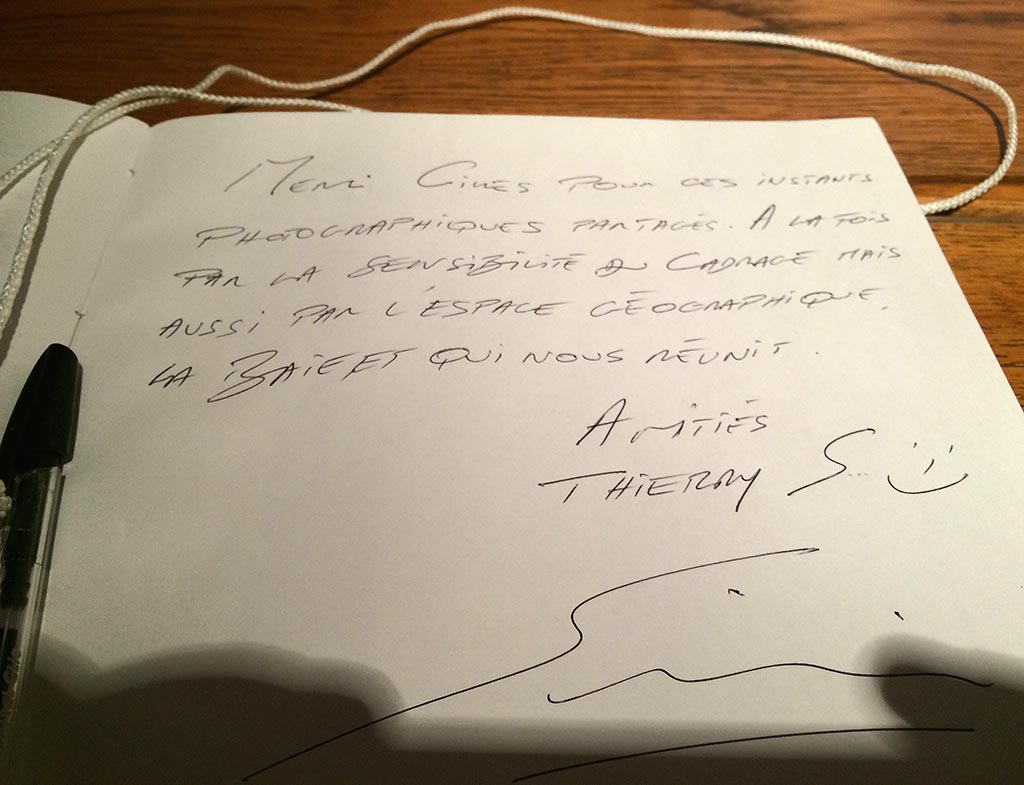 Merci Gilles pour ces instants
photographiques partagés. A la fois
par la sensibilité du cadrage mais
aussi par l'espace géographique.
La Baie et qui nous réunit.
Amitiés
Thierry S... :)